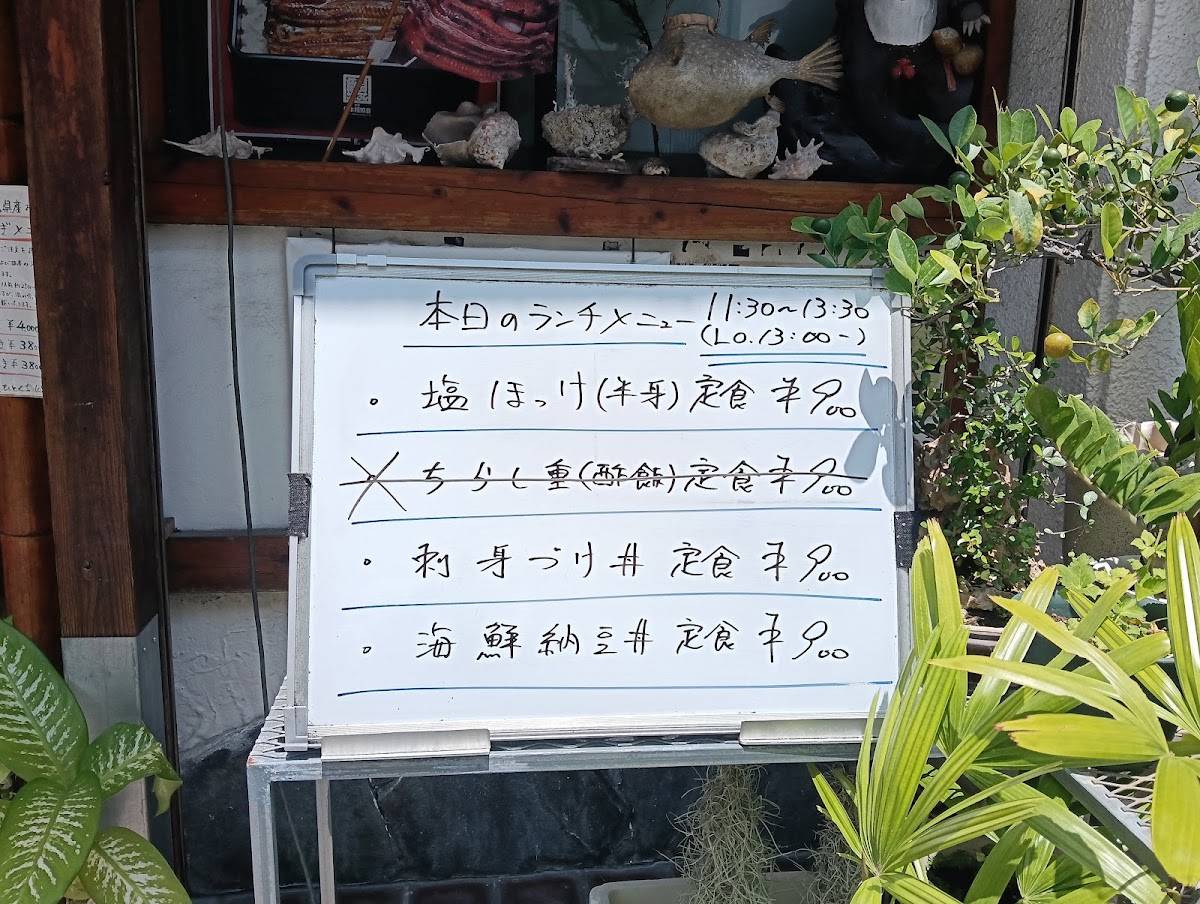 本日のランチメニュー 11:30~13:30
(L.O.13:00-)
・塩ほっけ(半身)定食 ¥900
×ちらし重(酢飯)定食 ¥900
・刺身づけ丼 定食 ¥900
・海鮮納豆丼 定食 ¥900
¥4000
¥380
¥380